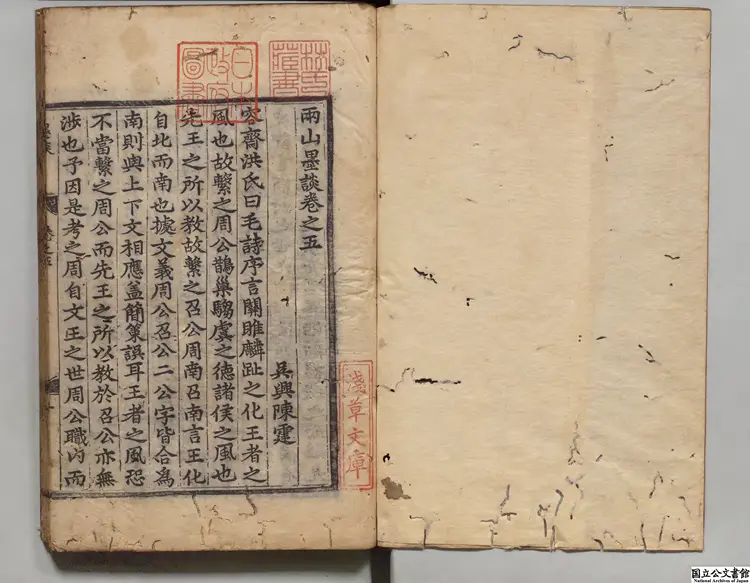 林氏藏書
日本政府圖書
兩山墨談卷之五
吳興陳霆
容齋洪氏曰毛詩序言關雎麟趾之化王者之
風也故繫之周公鵲巢騶虞之德諸侯之風也
先王之所以教故繫之召公周南召南言王化
自北而南也據文義周公召公二公字皆合爲
南則與上下文相應蓋簡策誤耳王者之風恐
不當繫之周公而先王之所以教於召公亦無
涉也予因是考之周自文王之世周公職內而
淺草文庫
国立公文書館
National Archives of Japan